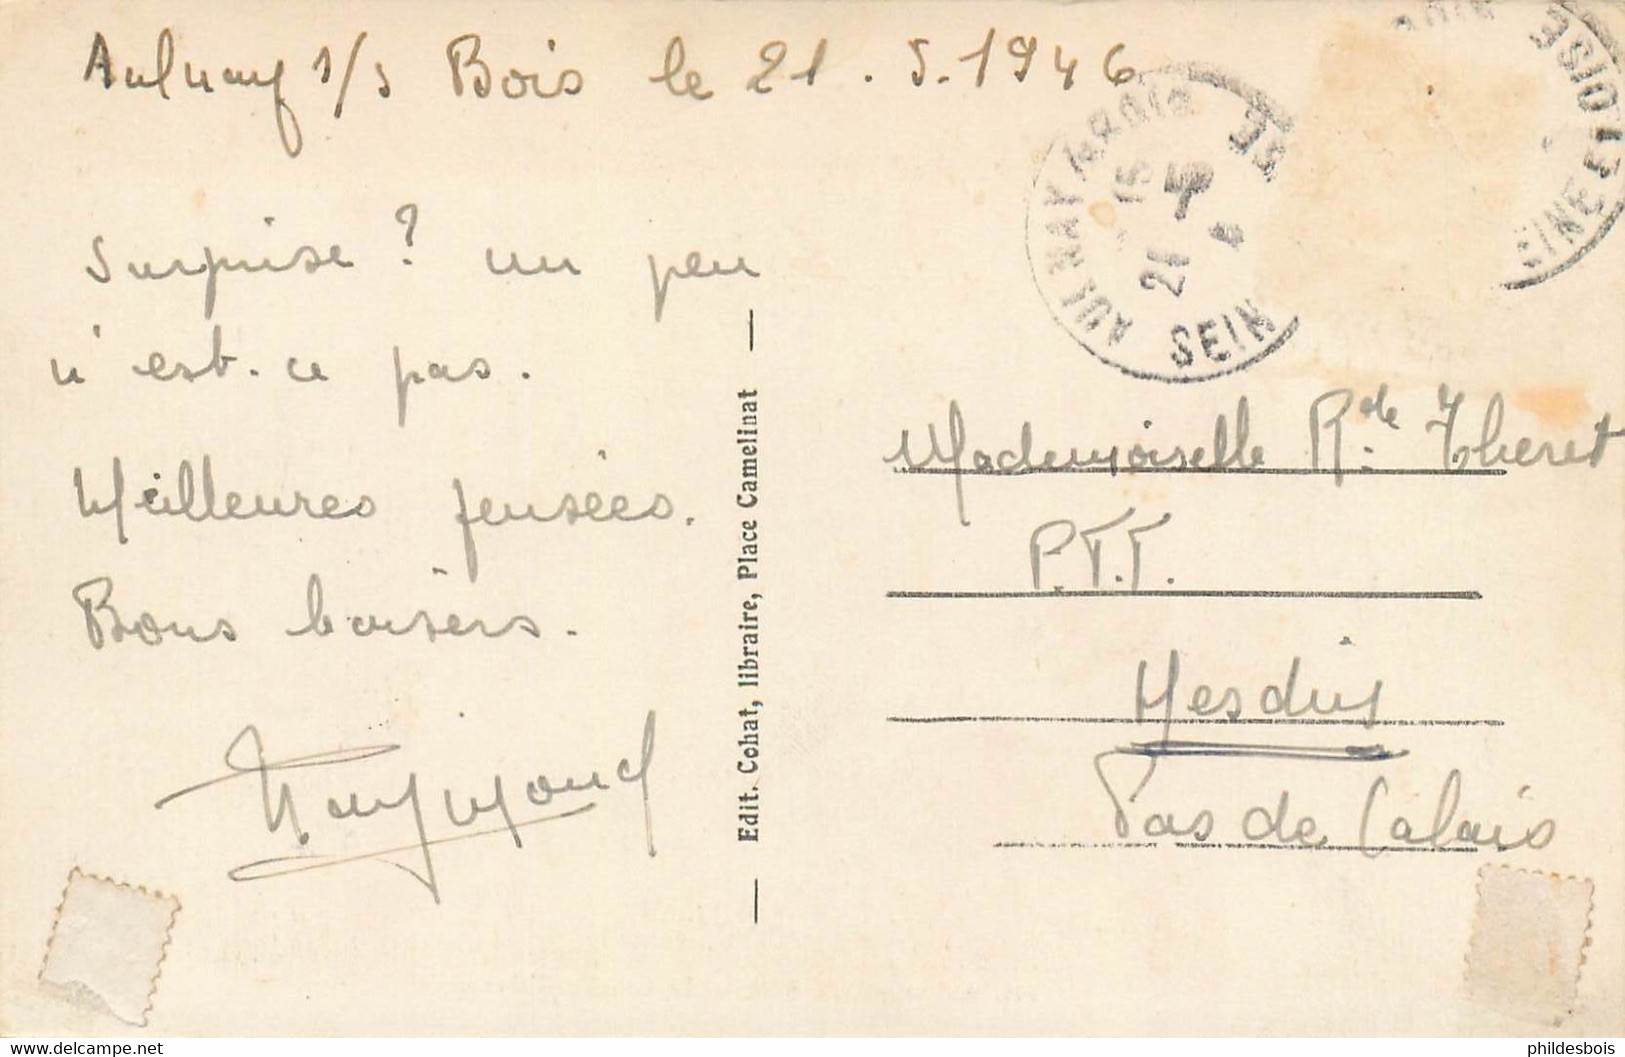 Aulnay s/s Bois le 21.5.1946
Surprise ? un peu
n'est-ce pas.
Meilleures pensées.
Bons baisers.
Raymond
Edit. Cohat, libraire, Place Camelinat
AULNAY
15
21 - 5
SEIN
SEINE ET OISE
Mademoiselle Rde Theret
P.T.T.
Hesdin
Pas de Calais
delcampe.net
phildesbois